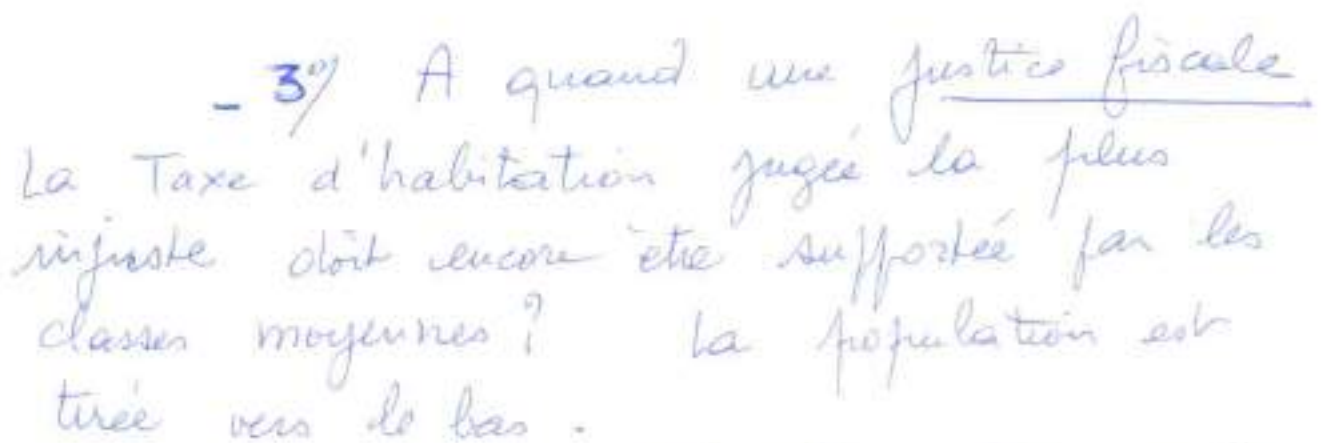 - 3°/ A quand une justice fiscale
La Taxe d'habitation jugée la plus
injuste doit encore être supportée par les
classes moyennes ? La population est
tirée vers le bas .